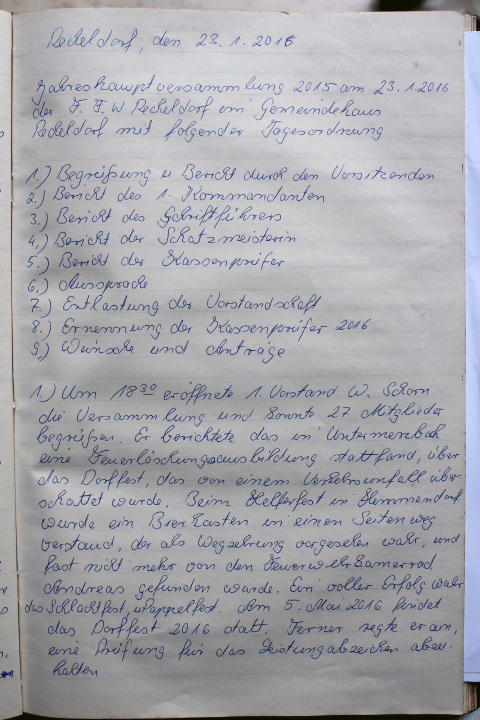 Reckeldorf, den 23.1.2016
Jahreshauptversammlung 2015 am 23.1.2016
der F.F.W Reckeldorf im Gemeindehaus
Reckeldorf mit folgender Tagesordnung
1.) Begrüßung u Bericht durch den Vorsitzenden
2.) Bericht des 1. Kommandanten
3.) Bericht des Schriftführers
4.) Bericht der Schatzmeisterin
5.) Bericht der Kassenprüfer
6.) Aussprache
7.) Entlastung der Vorstandschaft
8.) Ernennung der Kassenprüfer 2016
9.) Wünsche und Anträge
1.) Um 18³⁰ eröffnete 1. Vorstand W. Schorn
die Versammlung und konnte 27 Mitglieder
begrüßen. Er berichtete das in Untermerzbach
eine Feuerlöschungsausbildung stattfand, über
das Dorffest, das von einem Verkehrsunfall über-
schattet wurde. Beim Helferfest in Hemmendorf
wurde ein Bierkasten in einen Seitenweg
verstand, der als Wegzehrung vorgesehen wahr, und
fast nicht mehr von den Feuerwehrkamerrad
Andreas gefunden wurde. Ein voller Erfolg wahr
das Schlachtfest, u Pappelfest. Am 5. Mai 2016 findet
das Dorffest 2016 statt. Ferner regte er an,
eine Prüfung für das Leistungabzeichen abzu-
halten